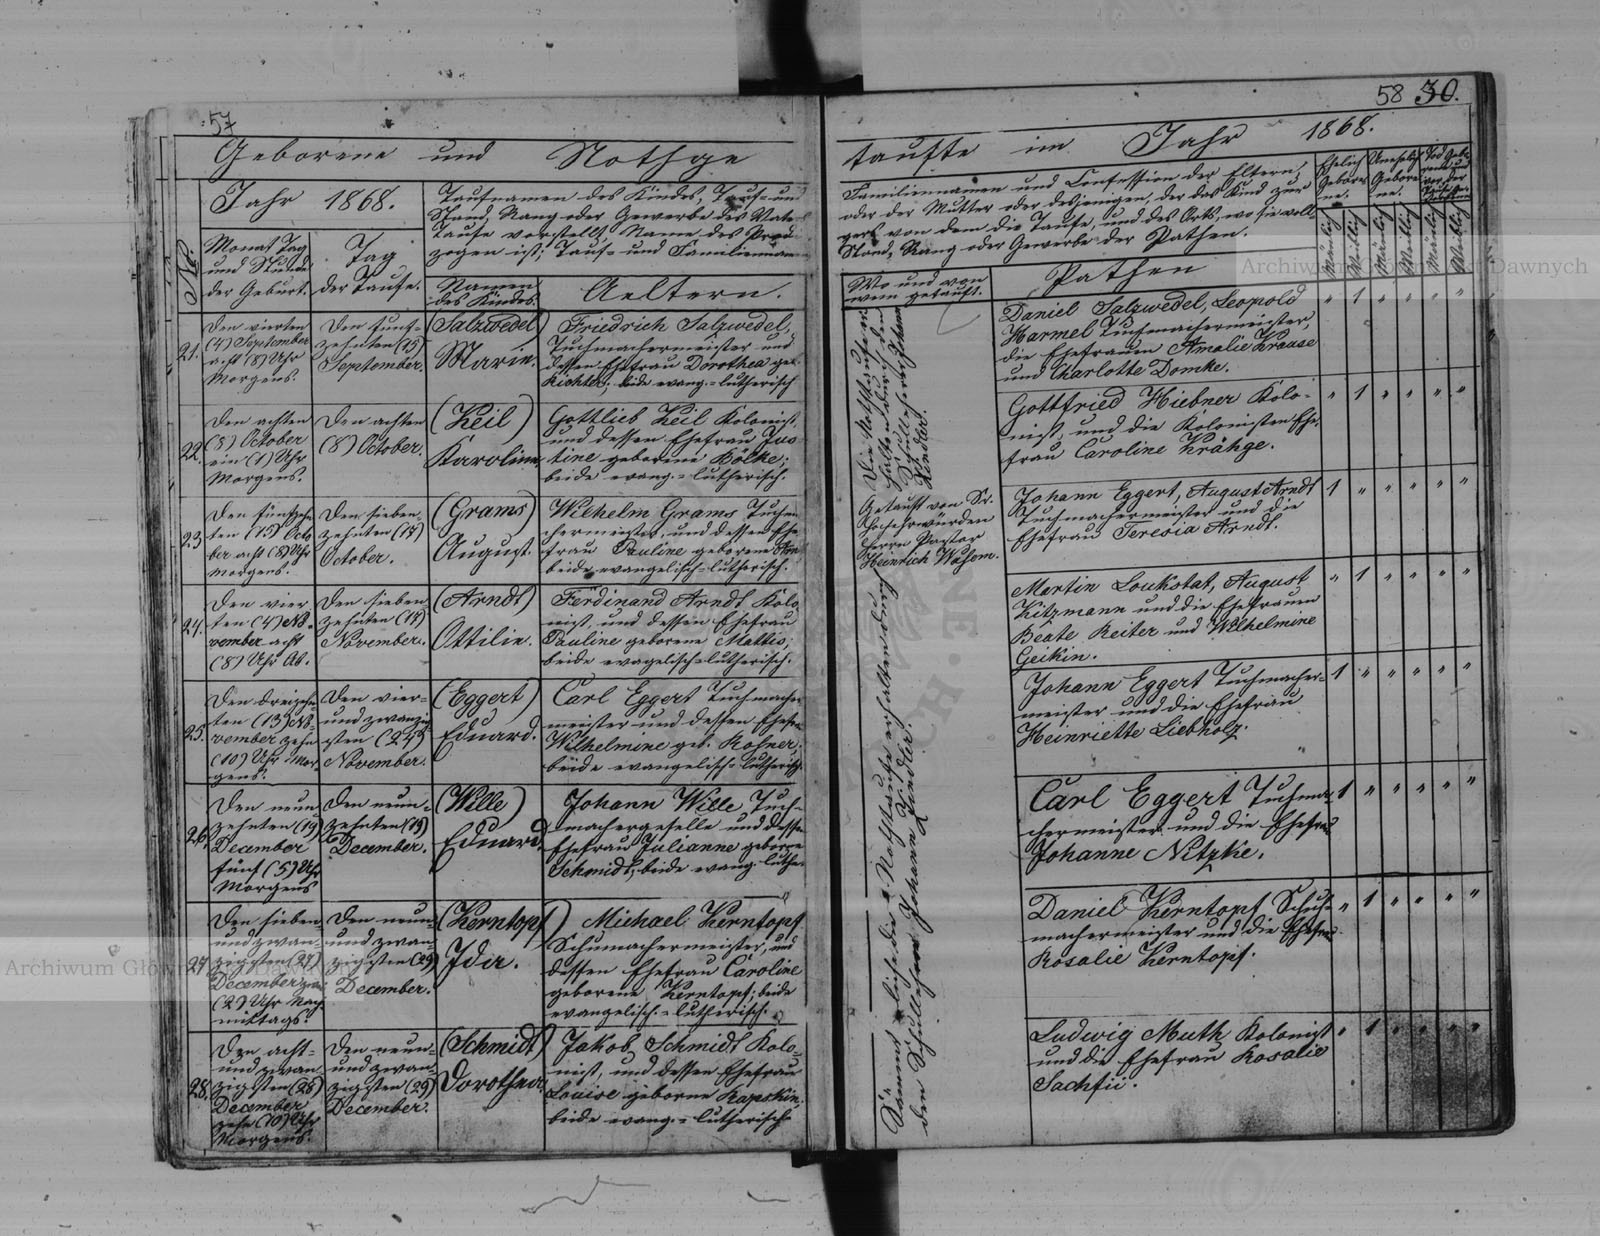 57
Geborene und Nothge
Jahr 1868.
Taufnamen des Kindes, Tauf- und
Stand, Rang oder Gewerbe des Vate
Taufe vorstellt Name des Pred
zogen ist; Tauf- und Familiennam
No.
Monat Tag
und Stunde
der Geburt.
Tag
der Taufe.
Namen
des Kindes.
Aeltern.
21.
Den vierten
(4) September
acht (8) Uhr
Morgens.
Den funf-
zehnten (15)
September.
(Salzwedel)
Marie.
Friedrich Salzwedel,
Tuchmachermeister und
dessen Ehefrau Dorothea geb.
Richter; beide evang.=lutherisch
22.
Den achten
(8) October
ein (1) Uhr
Morgens.
Den achten
(8) October.
(Keil)
Karoline.
Gottlieb Keil Kolonist,
und dessen Ehefrau Jus
tine geborene Bölke;
beide evang.=lutherisch.
23.
Den fünfzehn
ten (15) Octo
ber acht (8) Uhr
Morgens.
Den sieben
zehnten (17)
October.
(Grams)
August.
Wilhelm Grams Tuchma
chermeister, und dessen Ehe
frau Pauline geborene Arn
beide evangelisch=lutherisch.
24.
Den vier
ten (4) No-
vember acht
(8) Uhr Ab.
Den sieben
zehnten (17)
November.
(Arndt)
Ottilie.
Ferdinand Arndt Kolo
nist, und dessen Ehefrau
Pauline geborene Mattis,
beide evagelisch=lutherisch.
25.
Den dreizehn
ten (13) No-
vember zehn
(10) Uhr Mor-
gens.
Den vier-
und zwanzig
sten (24)
November.
(Eggert)
Eduard.
Carl Eggert Tuchmacher
meister und dessen Ehefra
Wilhelmine geb. Rosner,
beide evangelisch=lutherisch.
26.
Den neun
zehnten (19)
December
fünf (5) Uhr
Morgens
Den neun-
zehnten (19)
December.
(Wille)
Eduard.
Johann Wille Tuch-
machergeselle und dessen
Ehefrau Julianne geborne
Schmidt; beide evang.luther.
27.
Den sieben
und zwan-
zigsten (27)
December zwei
(2) Uhr Nach
mittags.
Den neun-
und zwan-
zigsten (29)
December.
(Kerntopf)
Ida.
Michael Kerntopf
Schumachermeister, und
dessen Ehefrau Caroline
geborene Kerntopf; beide
evangelisch.=lutherisch.
28.
Den acht-
und zwan
zigsten (28)
December
zehn (10) Uhr
Morgens.
Den neun-
und zwan-
zigsten (29)
December.
(Schmidt)
Dorothea.
Jakob Schmidt Kolo-
nist, und dessen Ehefrau
Louise geborne Rapskin,
beide evang.=lutherisch.
58 30.
taufte im Jahr 1868.
Familiennamen und Confession der Eltern,
oder der Mutter oder desjenigen, der das Kind zur
gers von dem die Taufe, und des Orts, wo sie voll
Stand, Rang oder Gewerbe der Pathen.
Ehelich
Gebore
ne.
Unehelich
Gebore
ne.
Tod Gebo
Mänlig
Weiblig
Mänlig
Weiblig
Mänlig
Weiblig
Wo und von
wem getauft.
Pathen
Die Nothtaufe
Schullehrer Johann
Kindler.
Daniel Salzwedel, Leopold
Harmel Tuchmachermeister,
die Ehefrauen Amalie Krause
und Charlotte Domke.
" 1 " " " "
Gottfried Hiebner Kolo-
nist, und die Kolonisten Ehe
frau Caroline Krähge.
" 1 " " " "
Getauft von Sr.
Hochehrwürden
Herrn Pastor
Heinrich Wosem.
Johann Eggert, August Arndt
Tuchmachermeister und die
Ehefrau Teresia Arndt.
1 " " " " "
Mertin Loukstat, August
Kitzmann und die Ehefrauen
Beate Reiter und Wilhelmine
Geikin.
" 1 " " " "
Sämmtliche die Nothtaufe erhalten durch
den Schullehrer Johann Kindler.
Johann Eggert Tuchmacher-
meister und die Ehefrau
Heinriette Liebholz.
1 " " " " "
Carl Eggert Tuchma-
chermeister und die Ehefrau
Johanne Nitzke.
1 " " " " "
Daniel Kerntopf Schuh-
machermeister und die Ehefrau
Rosalie Kerntopf.
" 1 " " " "
Ludwig Muth Kolonist
und die Ehefrau Rosalie
" 1 " " " "
Archiwum Główne Akt Dawnych
Archiwum Główne Akt Dawnych